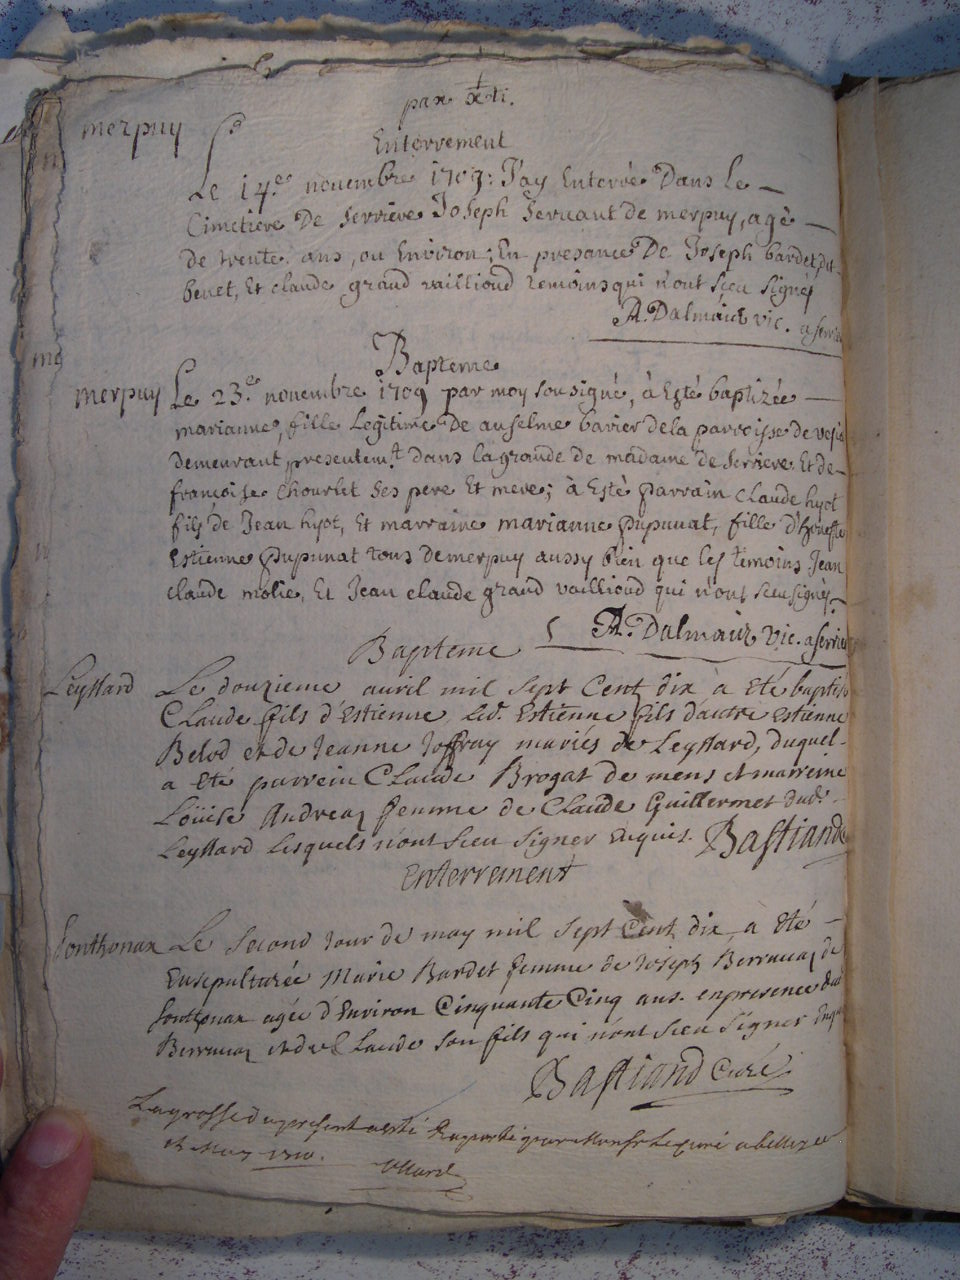 pax xti.
merpuy
Enterrement
Le 14.e novembre 1709: J'ay Enterré Dans Le
Cimetiere De Serriere Joseph Servant de merpuy, agé
de trente ans, ou Environ; En presance De Joseph bardet, dit
benet, Et claude grand vaillioud temoins qui n'ont sceu signés
A. Dalmaiz vic. a serrie
Bapteme
merpuy Le 23.e novembre 1709 par moy sousigné, à Esté baptizée
marianne, fille Legitime De anselme bavier de la parroisse de
demeurant presentem.t dans la grande de madame de Serriere Et de
françoise Chourlet ses pere Et mere; à Esté parrain claude hyot
fils de Jean hyot, Et marraine marianne pupunat, fille d'honeste
Estienne pupunat tous de merpuy aussy bien que les temoins Jean
claude molie, Et Jean claude grand vaillioud qui n'ont sceu signés
A. Dalmaiz Vic. a serrie
Bapteme
Leyssard Le douzieme avril mil sept Cent dix à eté baptisé
CLaude fils d'Estienne, Led. Estienne fils d'autre estienne
Belod et de Jeanne Joffray mariés de Leyssard, duquel
a eté parrein CLaude Brogat de mens et marreine
Loüise Andreaz femme de Claude Guillermet dud.
Leyssard Lesquels n'ont sceu signer enquis. Bastiand
Enterrement
Sonthonax Le second jour de may mil sept cent dix à eté
Ensepulturée Marie Bardet femme de Joseph Berruaz de
Sonthonax agée d'Environ Cinquante Cinq ans. en presence dud
Berruaz et de CLaude son fils qui n'ont sceu signer enq
Bastiand Curé
La grosse du present a esté Raporté par Monsr Le curé
may 1710.